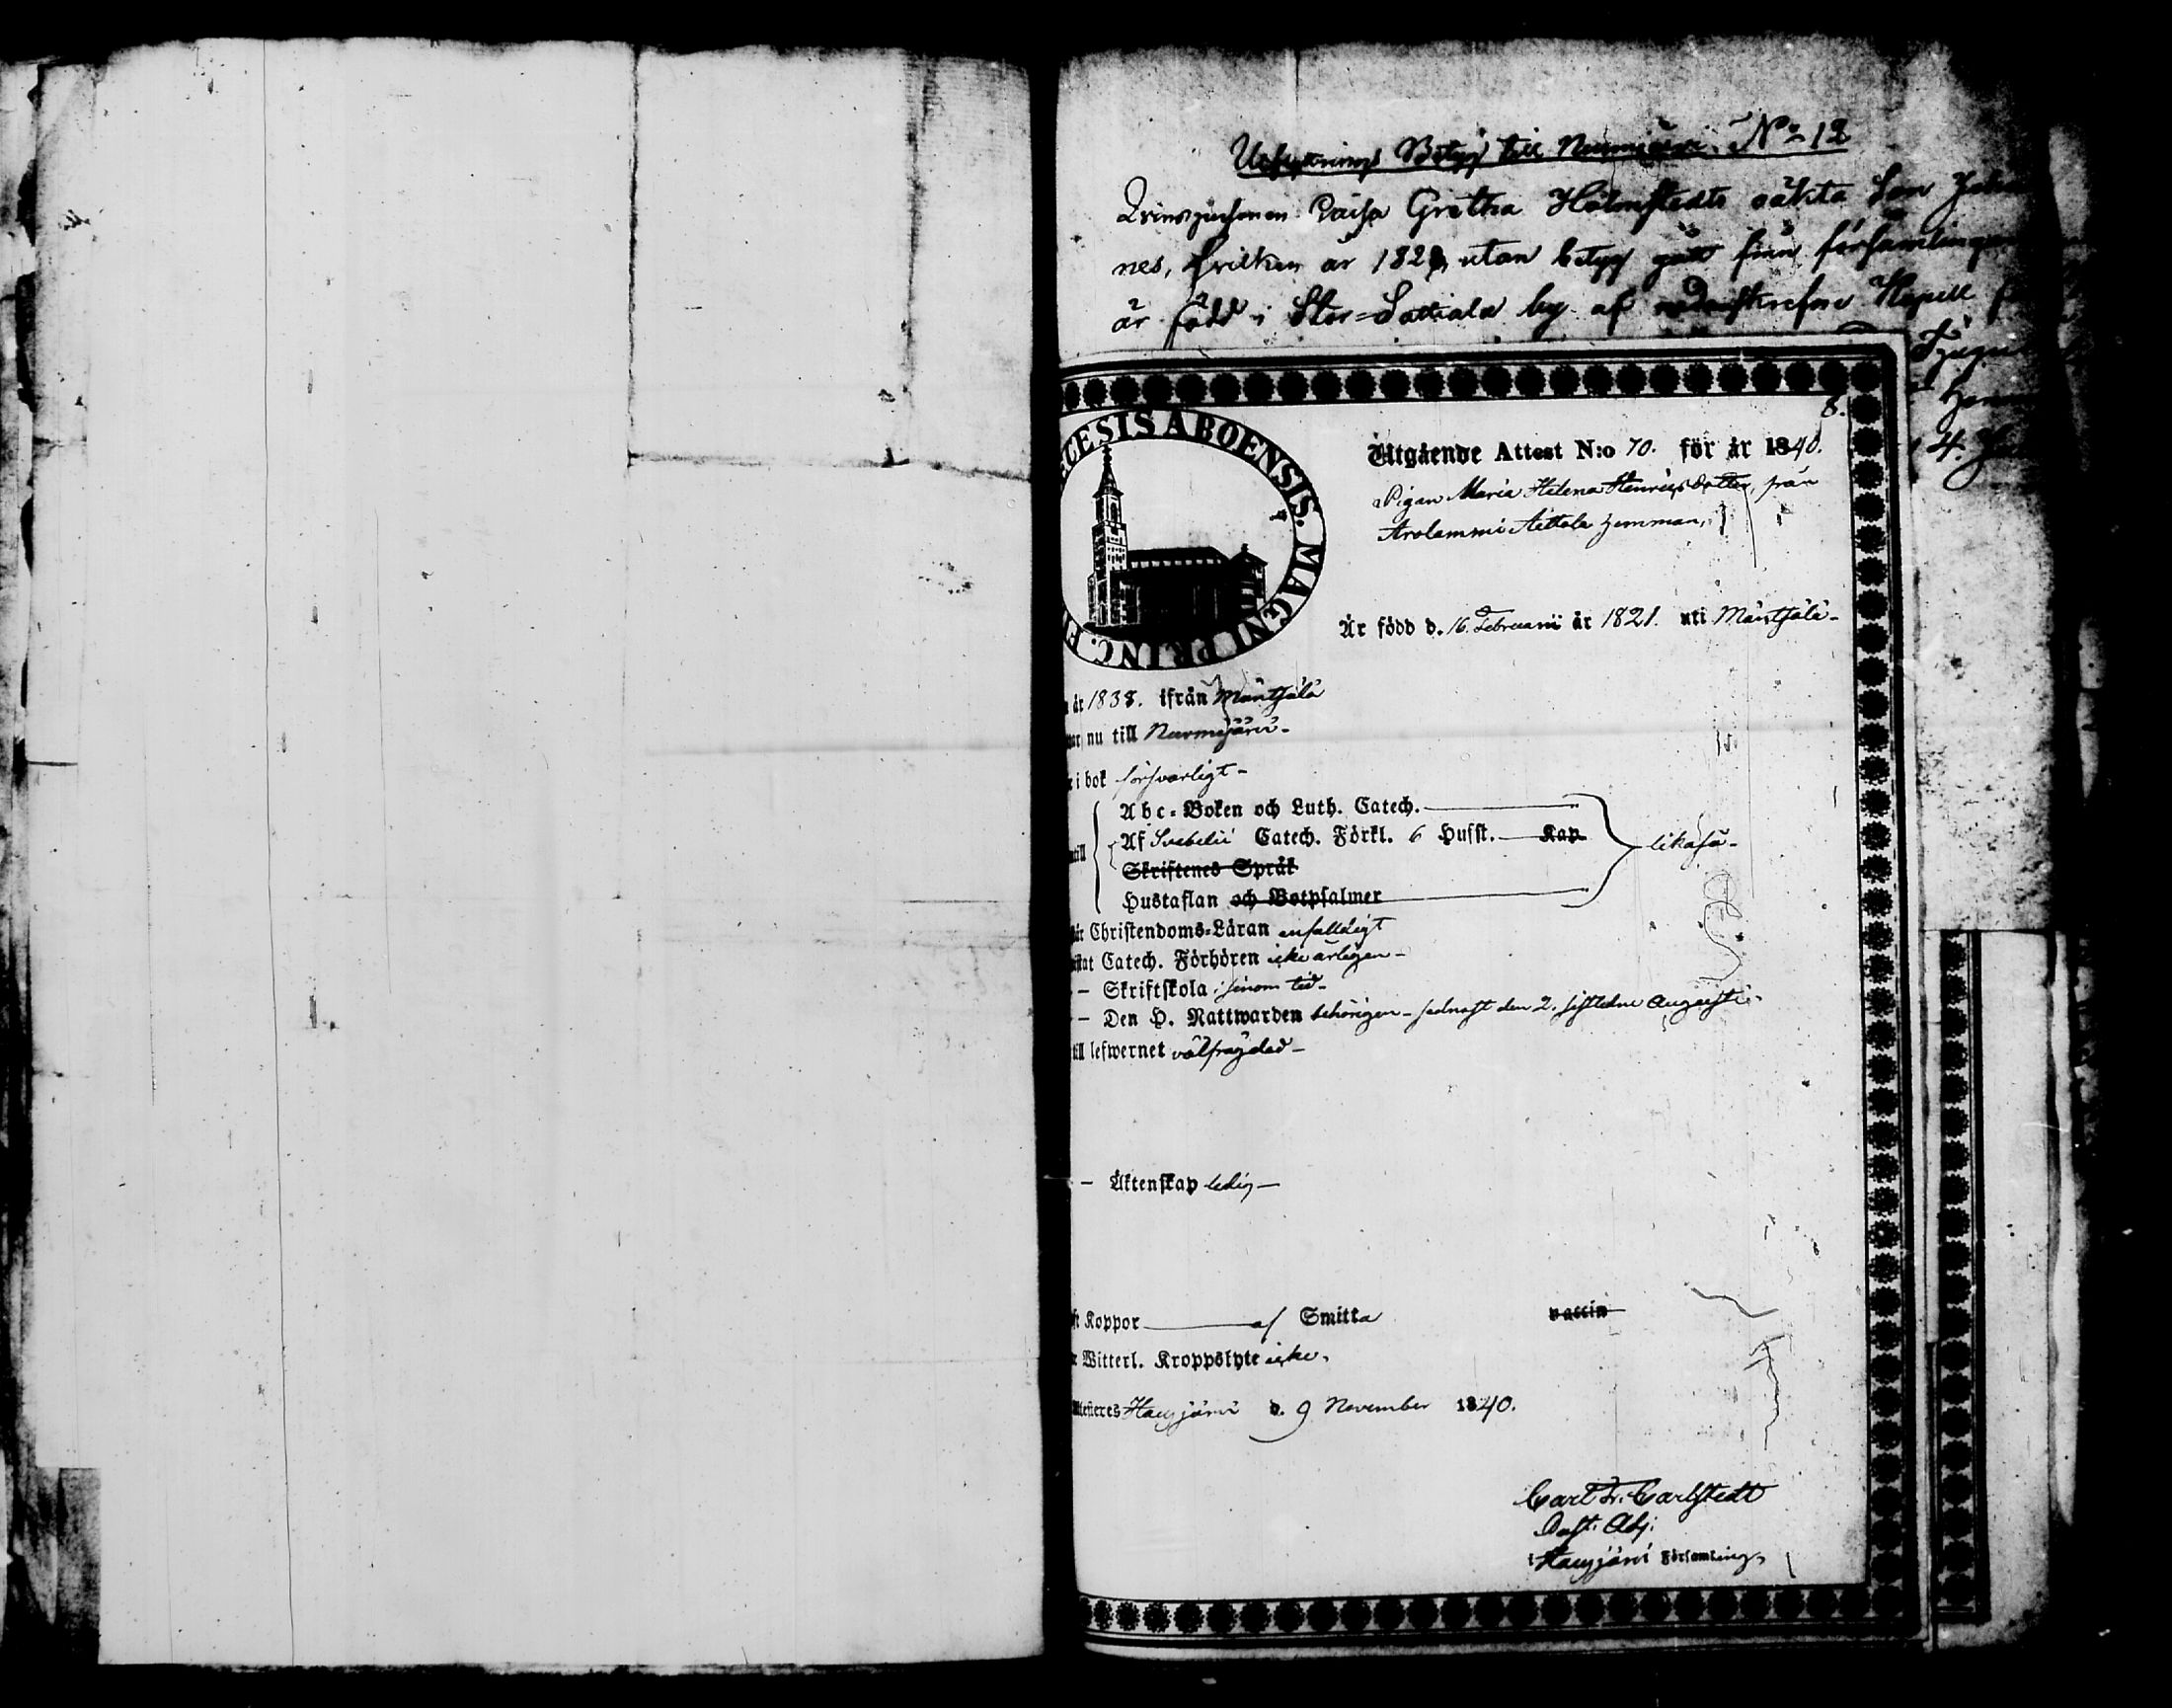 Utflyttnings Betyg till Nurmijärvi. No 12
Qvinspersonen Caisa Gretha Holmstedts oäkta Son Joha
nes, hvilken år 182 utan betyg gått från församlingen
är född i Stor=Sattiala by af Kapell
4.
8.
ECESIS ABOENSIS. MAGNI PRINC. F
Utgående Attest N:o 70. för år 1840.
Pigan Maria Helena Henricsdotter, från
Arolammi Aittola hemman,
Är född d. 16. Februarii år 1821. uti Mäntsälä-
år 1838. ifrån Mäntsälä
nu till Nurmijärvi-
i bok försvarligt-
Abc-Boken och Luth. Catech.
Af Svebelii Catech. Förkl. 6 Hufst. Kap
Skriftenes Språk
Hustaflan och Botpsalmer
likaså-
Christendoms-Läran enfaldigt
Catech. Förhören icke årligen-
- Skriftskola i sinom tid-
- Den H. Nattwarden behörigen- sednast den 2. sistledne Augusti-
till lefwernet välfrägdad-
- Äktenskap ledig-
Koppor af Smitta vaccin
Witterl. Kroppslyte icke.
Hausjärvi d. 9 November 1840.
Carl Fr. Carlstedt
Past. Adj.
i Hausjärvi Församling